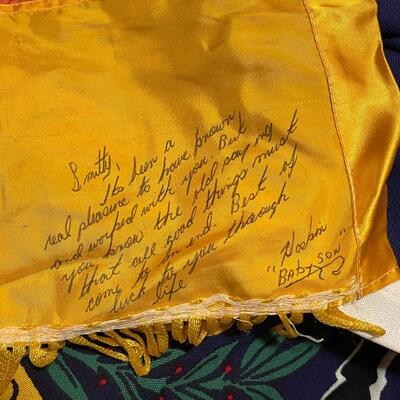 Smitty,
Its been a
real pleasure to have known
and worked with you. But
you know the old saying
that all good things must
come to an end. Best of
luck to you through
life
"
"BABY SON"